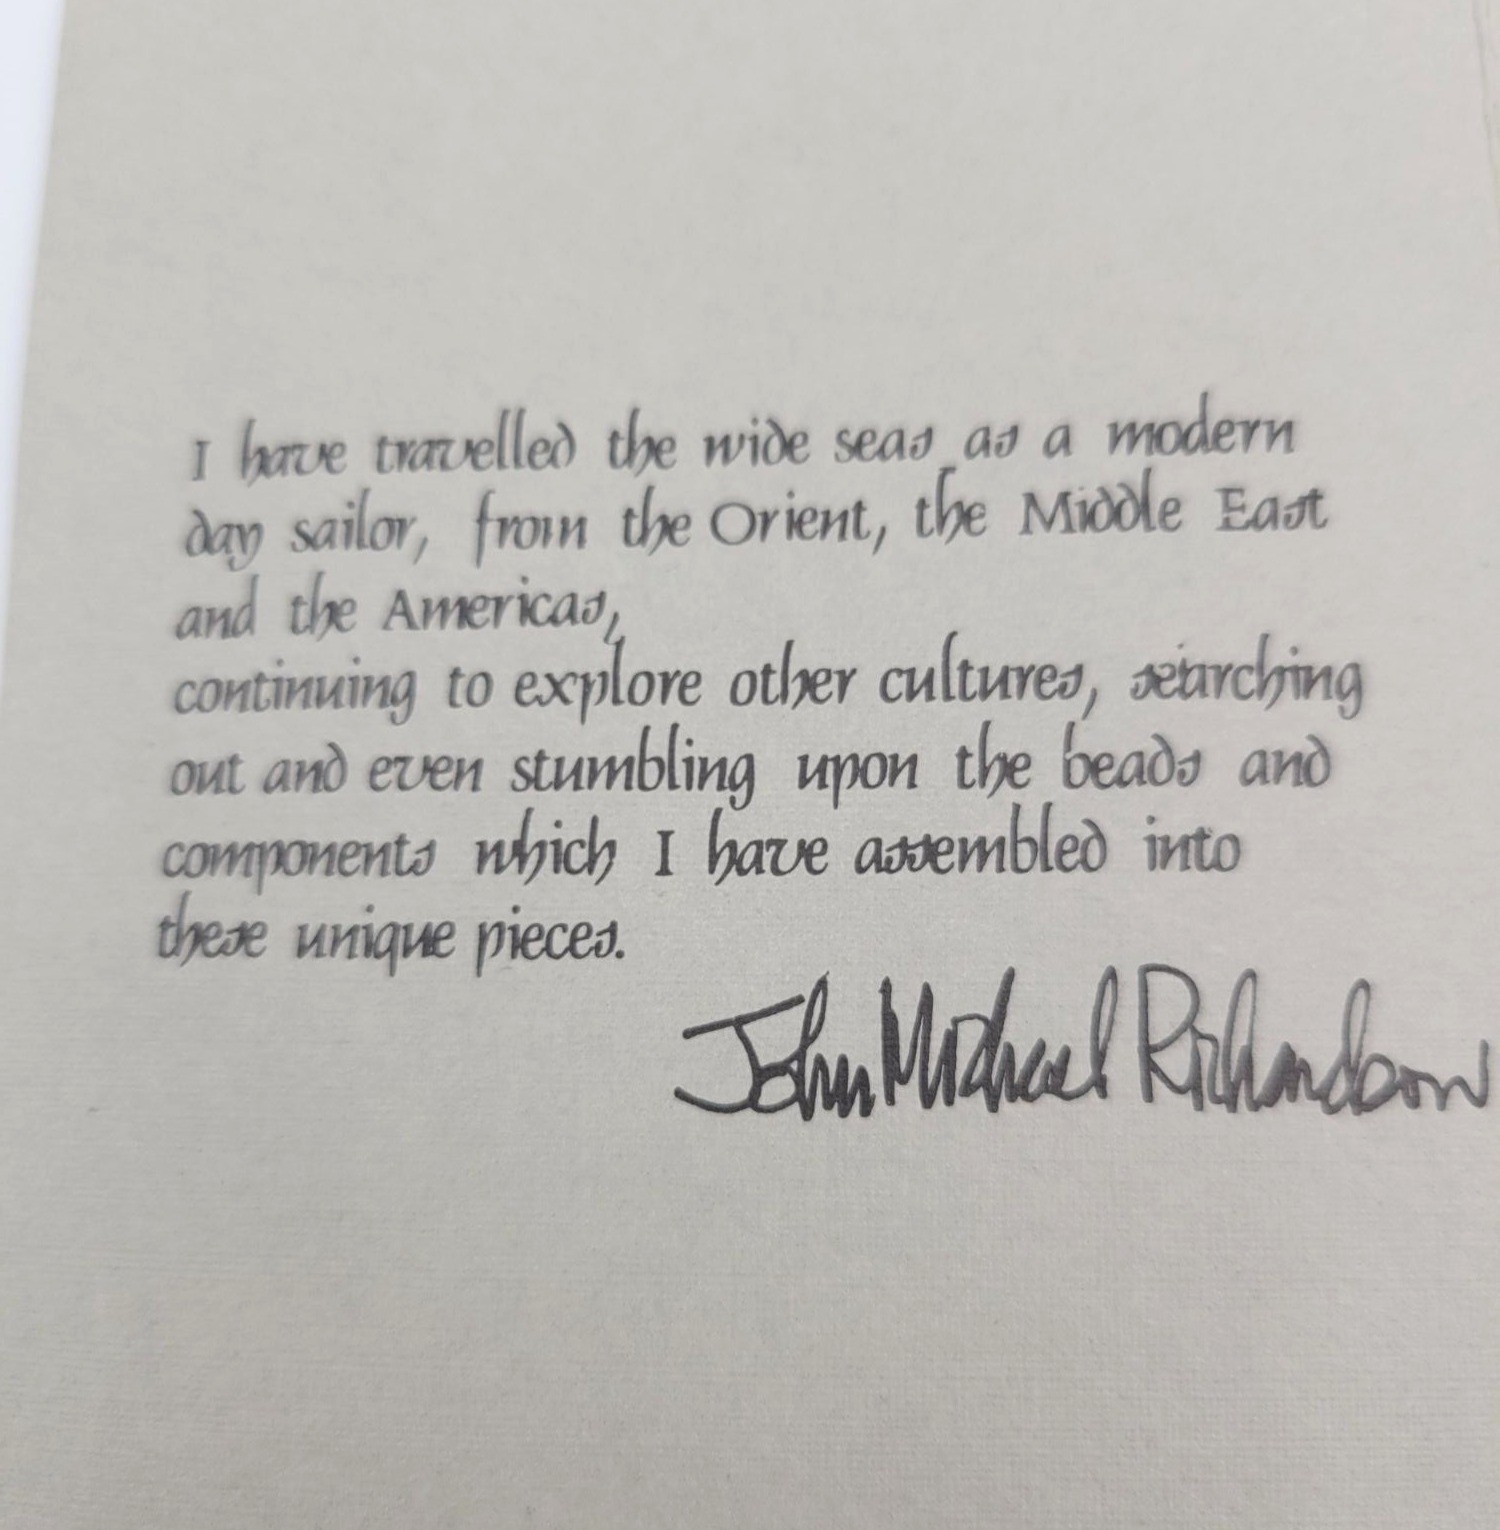 I have travelled the wide seas as a modern
day sailor, from the Orient, the Middle East
and the Americas,
continuing to explore other cultures, searching
out and even stumbling upon the beads and
components which I have assembled into
these unique pieces.
John Michael Richardson